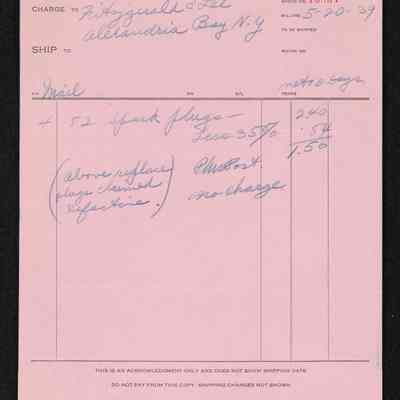 CHARGE TO Fitzgerald & Lee
BILLING 5-20-39
Alexandria Bay N.Y
TO BE SHIPPED
SHIP TO
VIA Mail
TERMS net 10 days
4 52 Spark plugs — 2.40
Less 35% .84
1.50
(above replace Plus Post.
plugs claimed no charge
defective.)
THIS IS AN ACKNOWLEDGMENT ONLY AND DOES NOT SHOW SHIPPING DATE
DO NOT PAY FROM THIS COPY. SHIPPING CHARGES NOT SHOWN